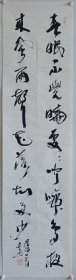 春眠不觉晓处处闻啼鸟夜
来风雨声花落知多少